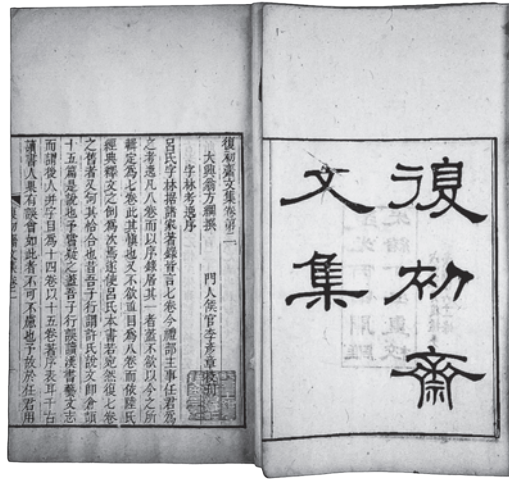 復初齋
文集
復初齋文集卷第二
大興翁方綱撰 門人侯官李彥章校刊
字林考逸序
呂氏字林據諸家著錄皆言七卷今禮部主事任君爲
之考逸凡八卷而以序錄居其一者蓋不欲以今之所
輯定爲七卷此其愼也又不欲直目爲八卷而依陸氏
經典釋文之例爲次焉遂使呂氏本書若宛然復七卷
之舊者又何其恰合也昔吾子行謂許氏說文即倉頡
十五篇是說也予嘗疑之蓋吾子行誤讀漢書藝文志
而謂後人并字目爲十四卷以十五卷著序表耳千古
讀書人果有誤會如此者不可不慮也予故於任君用